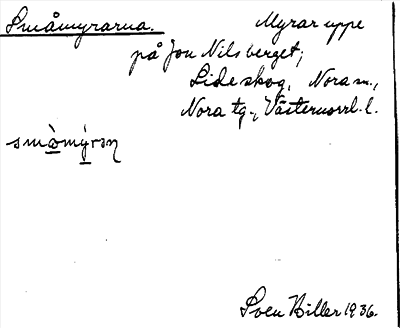 Småmyrarna. Myrar uppe
på Jon Nilsberget;
Lideskog, Nora sn.,
Nora tg., Västernorrl. l.
småmýrəɳ
Sven Biller 1936.